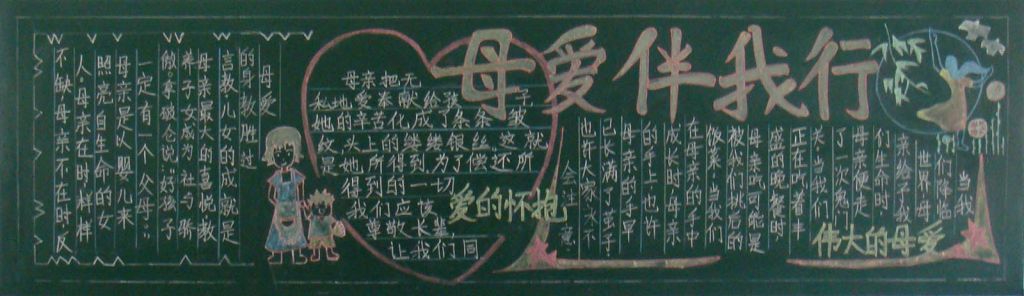 母爱伴我行
当我
们降临
世界母
亲给了我
们生命时
母亲便走
了一次鬼门
关当我们
正在吃着丰
盛的晚餐时
母亲或可能是
被我们挑后的
饭菜当我们
在母亲的手中
成长时母亲
的手上也许
母亲的手早
已长满了茧子
也许大家永不
会注意
伟大的母爱
母亲把无
私地爱奉献给孩子
她的辛苦化成了条条皱
纹是头上的缕缕银丝这就
是她所得到为了偿还所
得到的一切
我们应该
尊敬长辈
让我们同
爱的怀抱
母爱
的身教胜过
言教儿女的成就是
母亲最大的喜悦教
养子女成为社与斯
微李独伦说好孩子
一定有一个父母
母亲是从婴儿来
照亮自生命的女
人母亲在时样样
不缺母亲不在时反